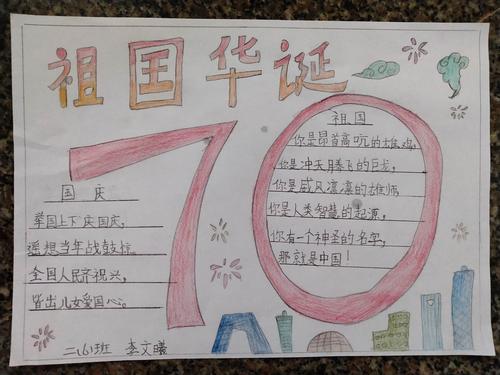 祖国华诞
70
国庆
举国上下庆国庆,
遥想当年战鼓擂.
全国人民齐祝兴,
皆出儿女爱国心。
祖国
你是昂首高吭的雄鸡,
你是冲天腾飞的巨龙,
你是威风凛凛的雄师,
你是人类智慧的起源,
你有一个神圣的名字,
那就是中国!
二(6)班 李文曦